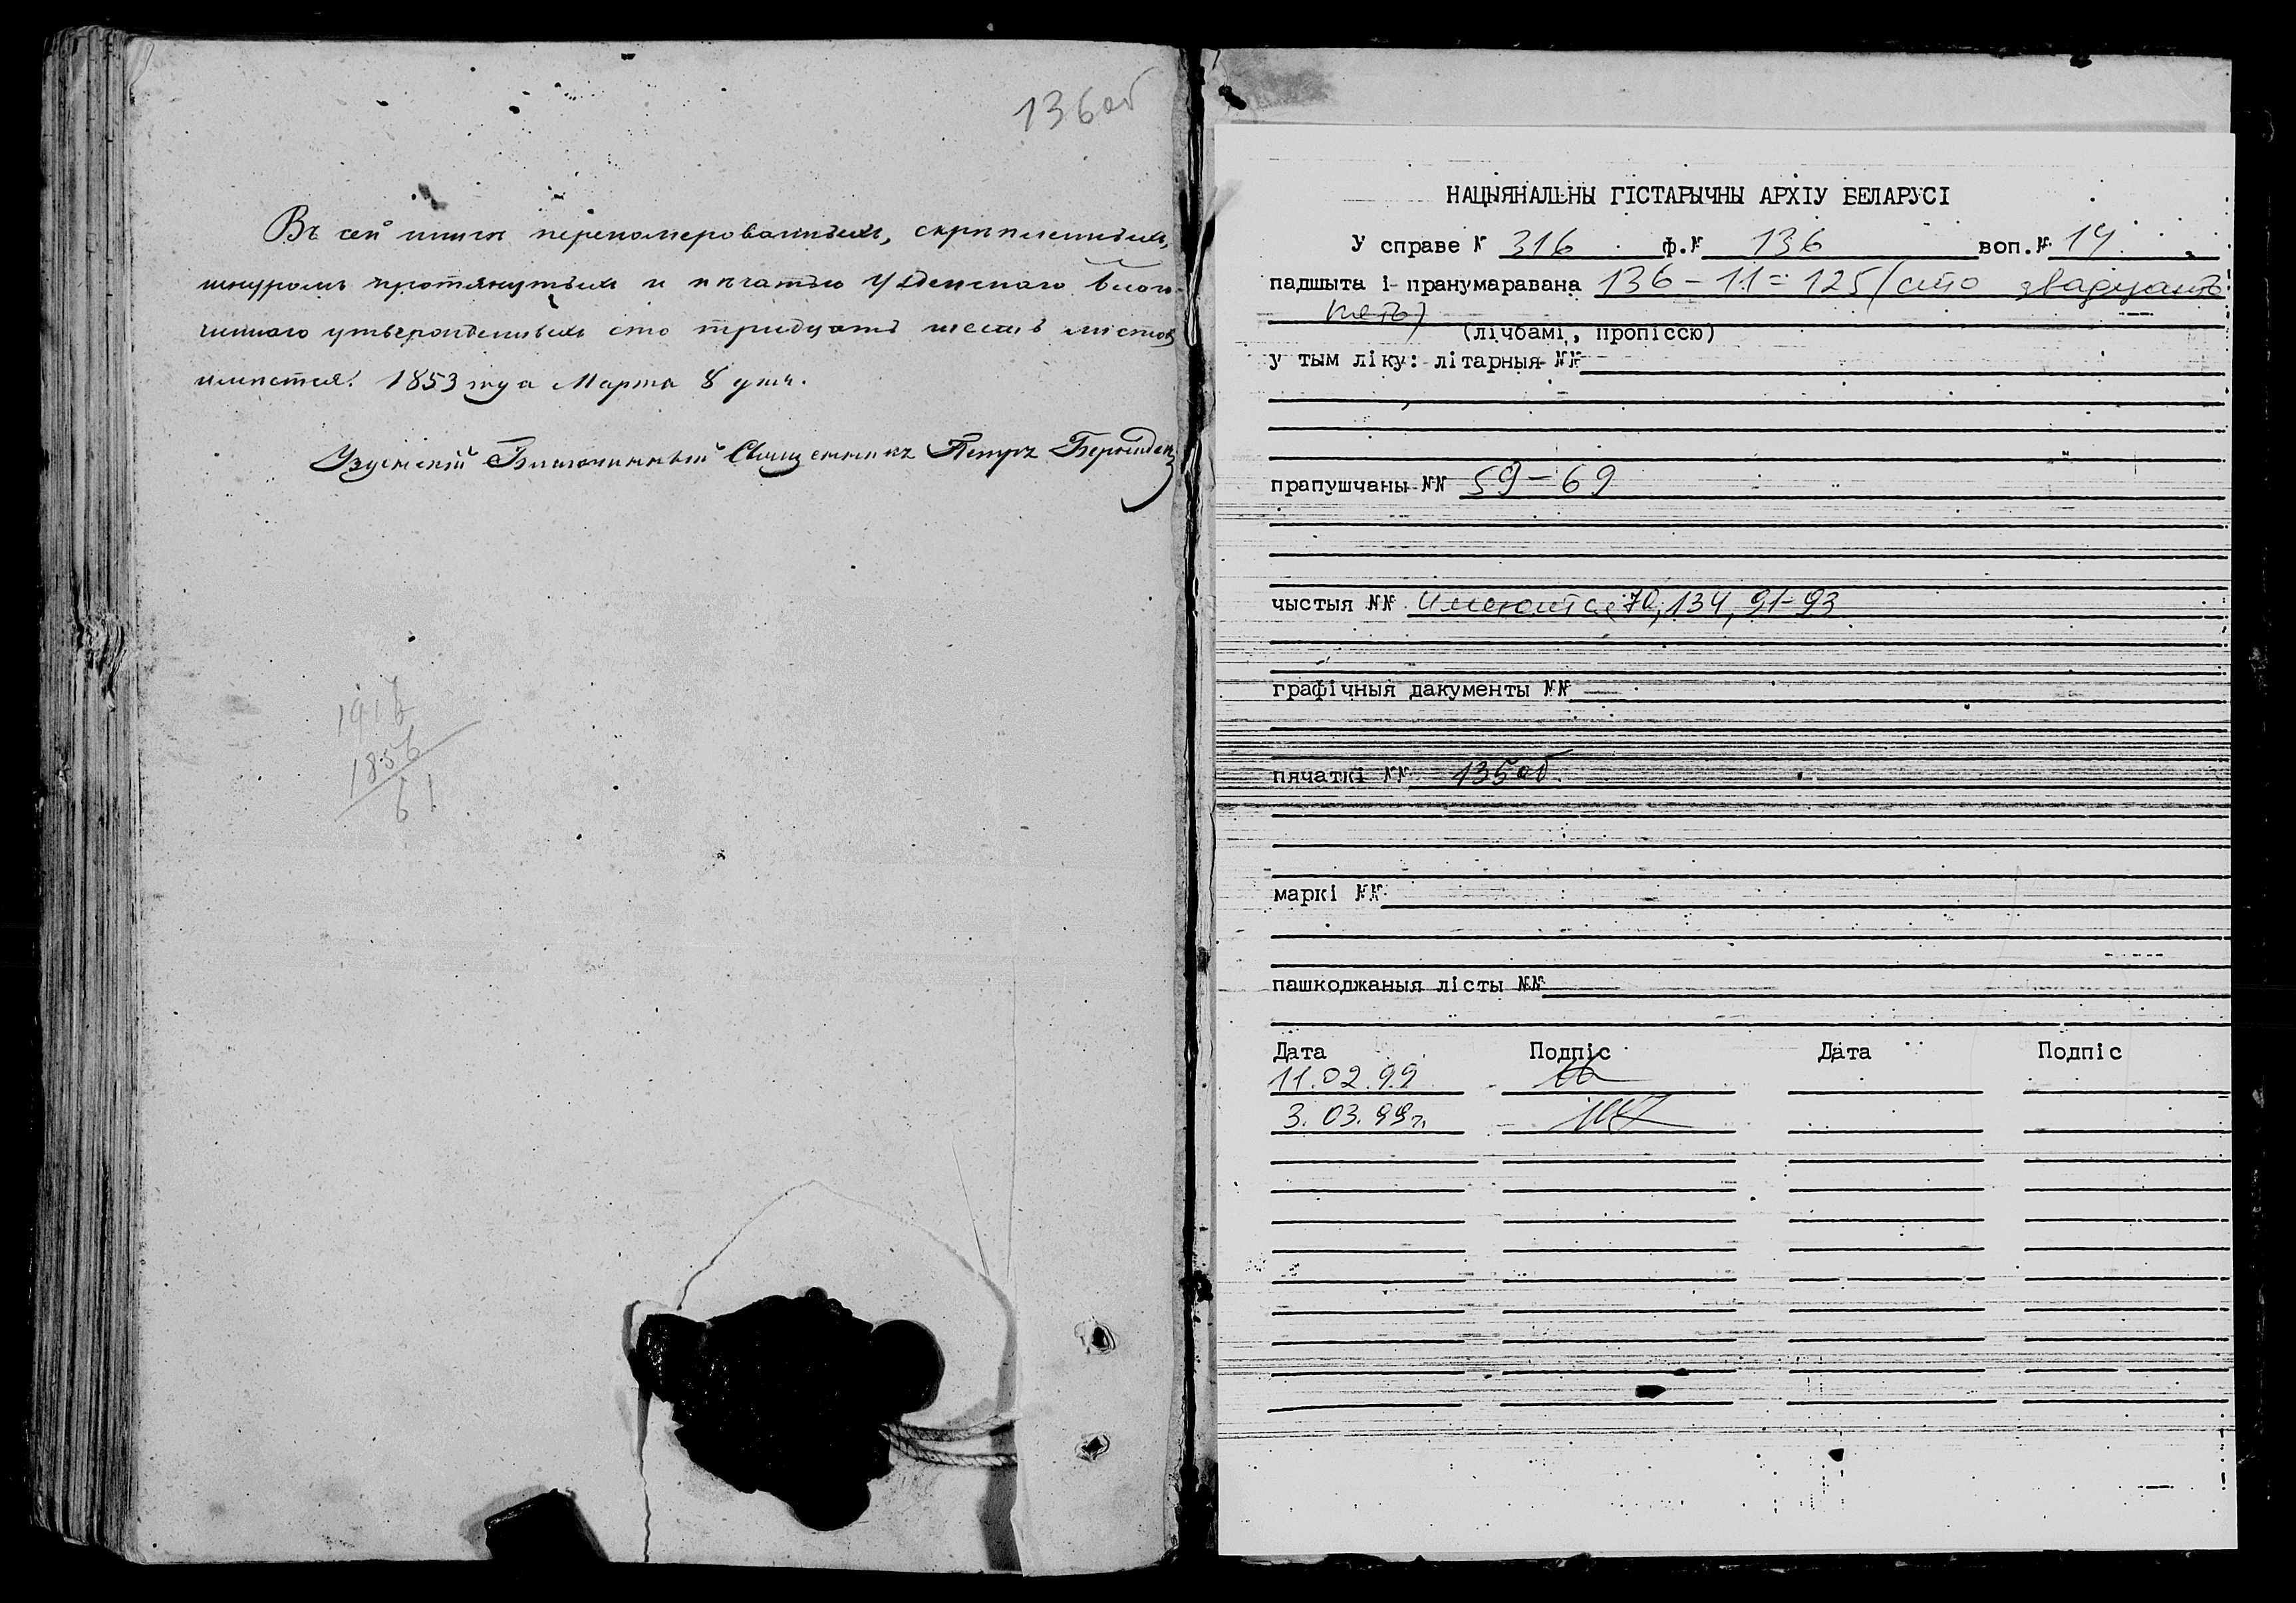 136 об
Въ сей книгѣ перенумерованныхъ, скрѣпленныхъ,
шнуромъ протянутыхъ и печатью Узденскаго благо-
чиннаго утвержденныхъ сто тридцать шесть листовъ
имѣется. 1853 года Марта 8 дня.
Узденскій Благочинный Священникъ Петръ
1917
1856
61
НАЦЫЯНАЛЬНЫ ГІСТАРЫЧНЫ АРХІУ БЕЛАРУСІ
У справе № 316 ф.№ 136 воп.№ 14
падшыта і пранумаравана 136-11=125 (сто дваццаць
пяць)
(лічбамі, пропіссю)
у тым ліку: літарныя №№
прапушчаны №№ 59-69
чыстыя №№ имеются 70, 134, 91-93
графічныя дакументы №№ —
пячаткі №№ 135об.
маркі №№
пашкоджаныя лісты №№
Дата Подпіс Дата Подпіс
11.02.99
3.03.99г.